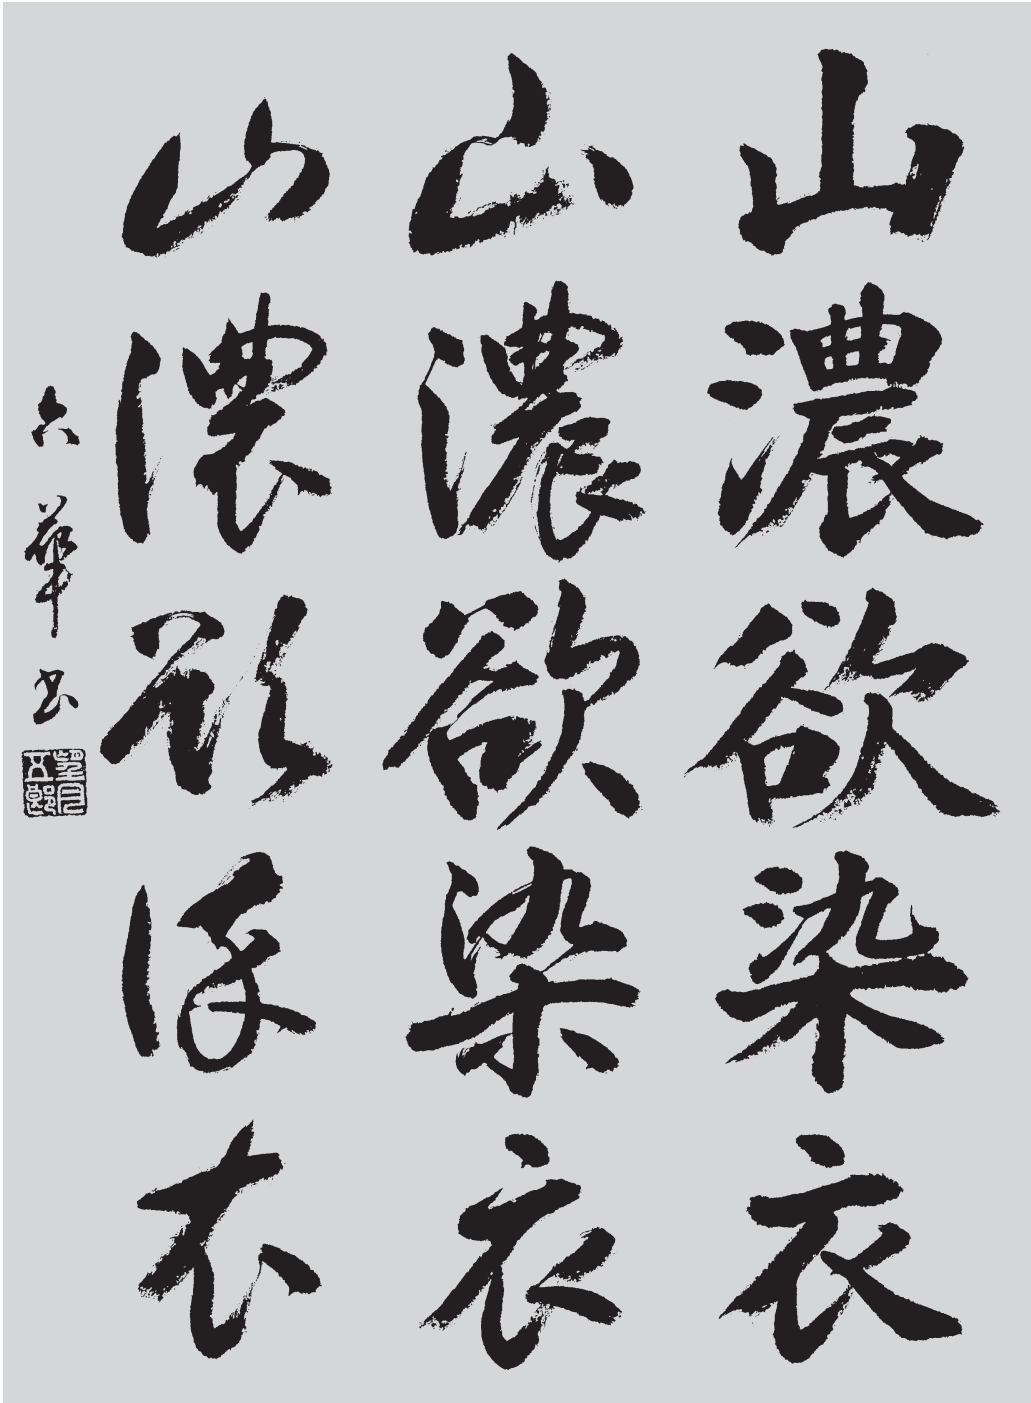 山濃欲染衣
山濃欲染衣
山濃欲染衣
六華書